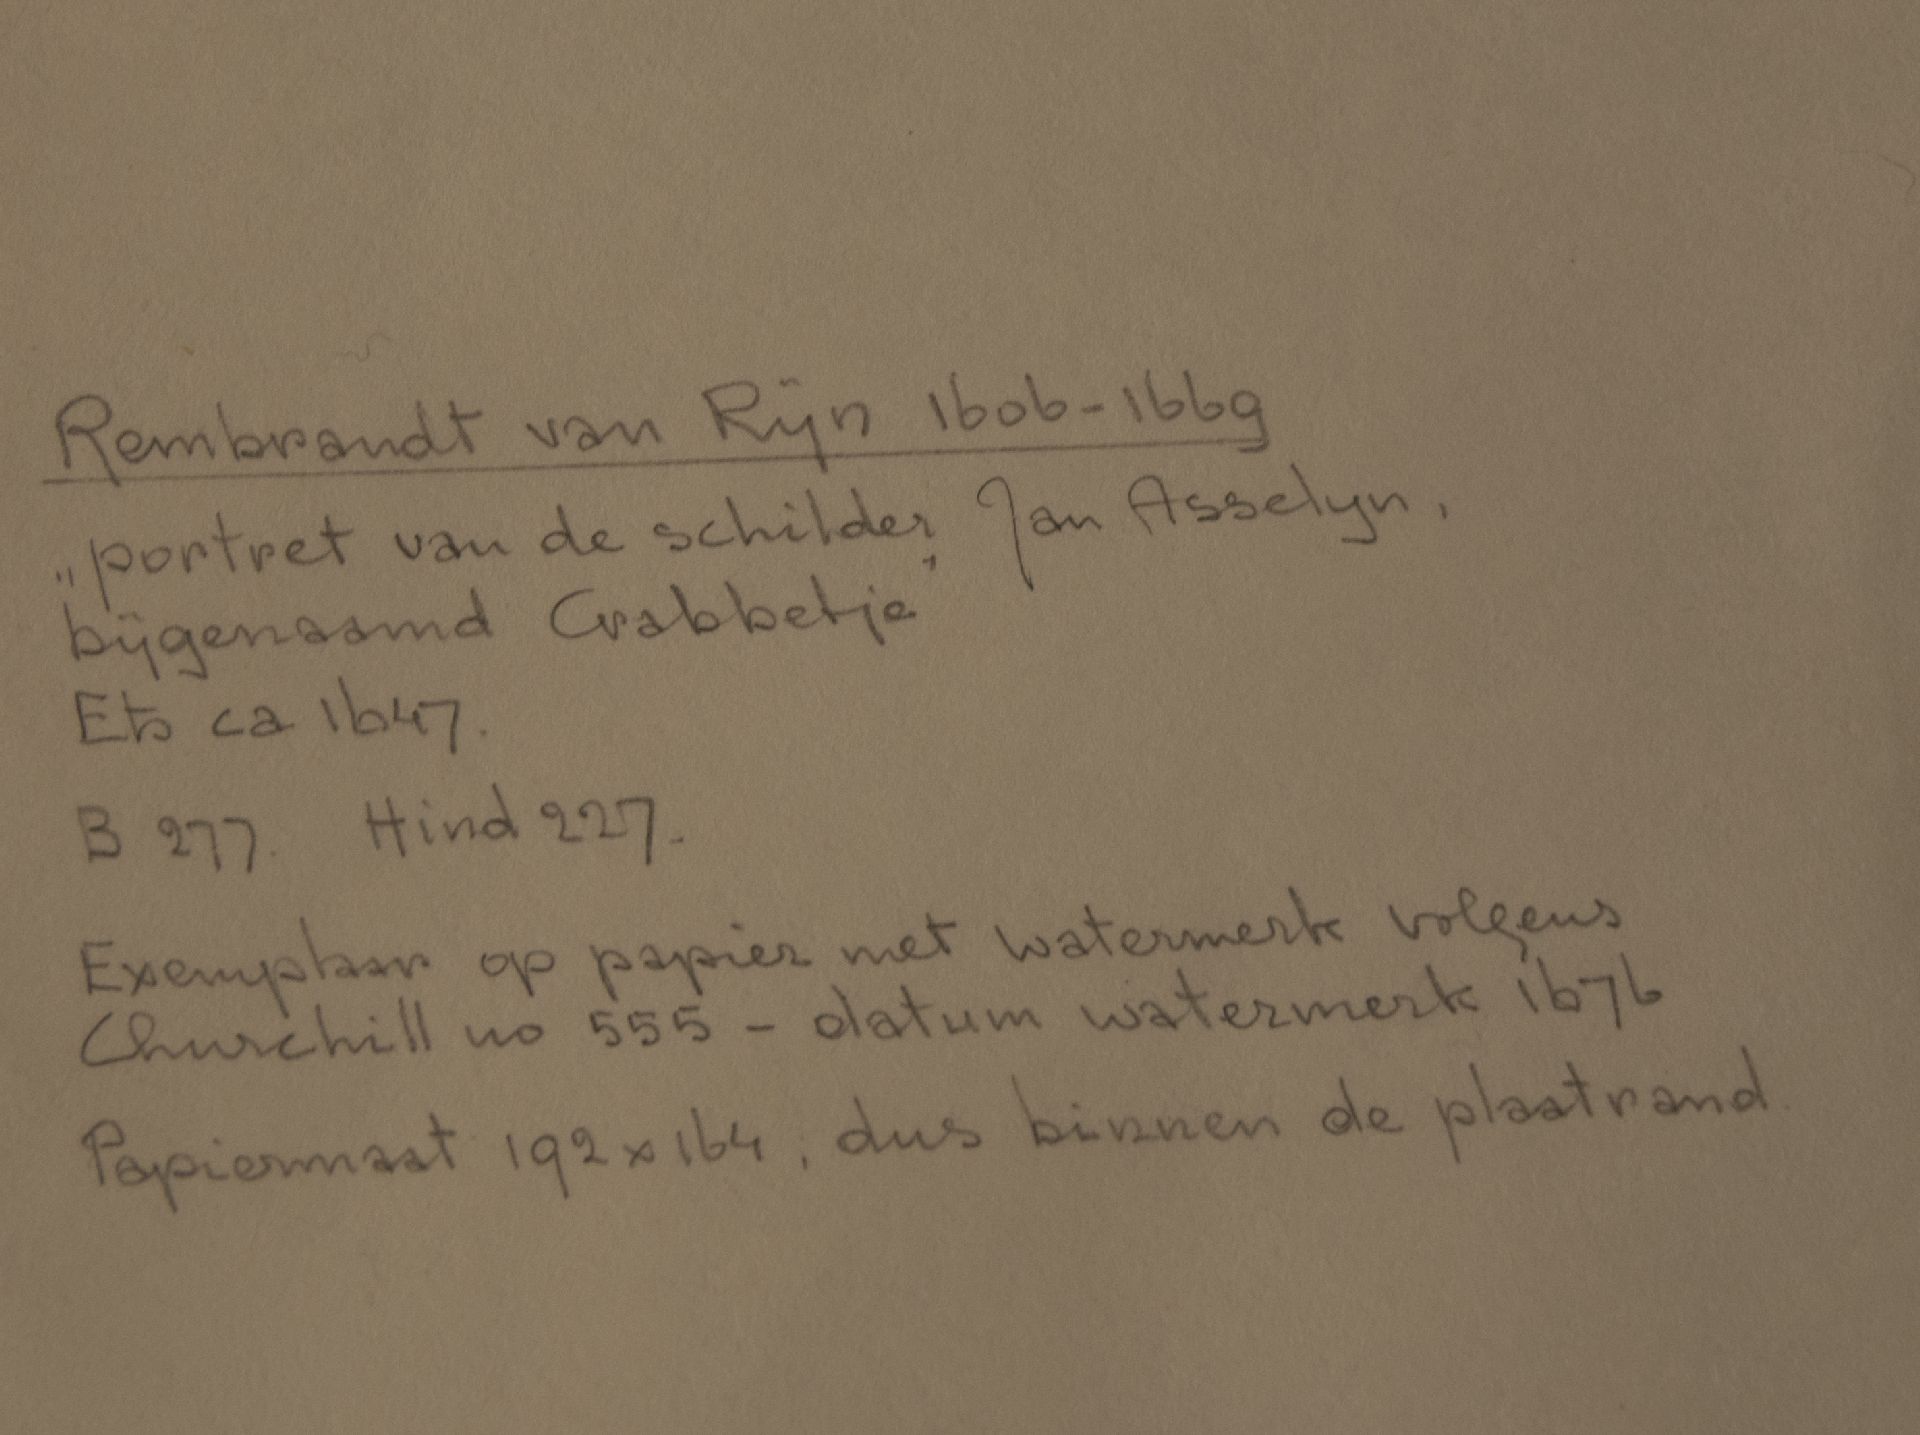 Rembrandt van Rijn 1606-1669
„portret van de schilder, Jan Asselyn,
bijgenaamd Crabbetje”
Ets ca 1647.
B 277. Hind 227.
Exemplaar op papier met watermerk volgens
Churchill no 555 - datum watermerk 1676
Papiermaat 192 x 164, dus binnen de plaatrand